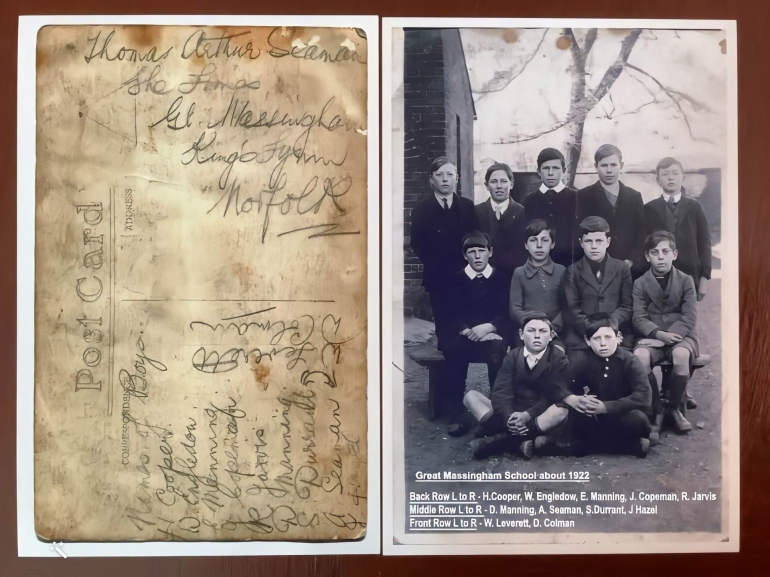 Thomas Arthur Seaman
The Limes
Gt. Massingham
King's Lynn
Norfolk
Post Card
ADDRESS
CORRESPONDENCE
Names of Boys
H Cooper
W Engledow
E Manning
J Copeman
R Jarvis
D Manning
S Durrant
A Seaman
Leverett
Colman
Great Massingham School about 1922
Back Row L to R - H.Cooper, W. Engledow, E. Manning, J. Copeman, R. Jarvis
Middle Row L to R - D. Manning, A. Seaman, S.Durrant, J Hazel
Front Row L to R - W. Leverett, D. Colman